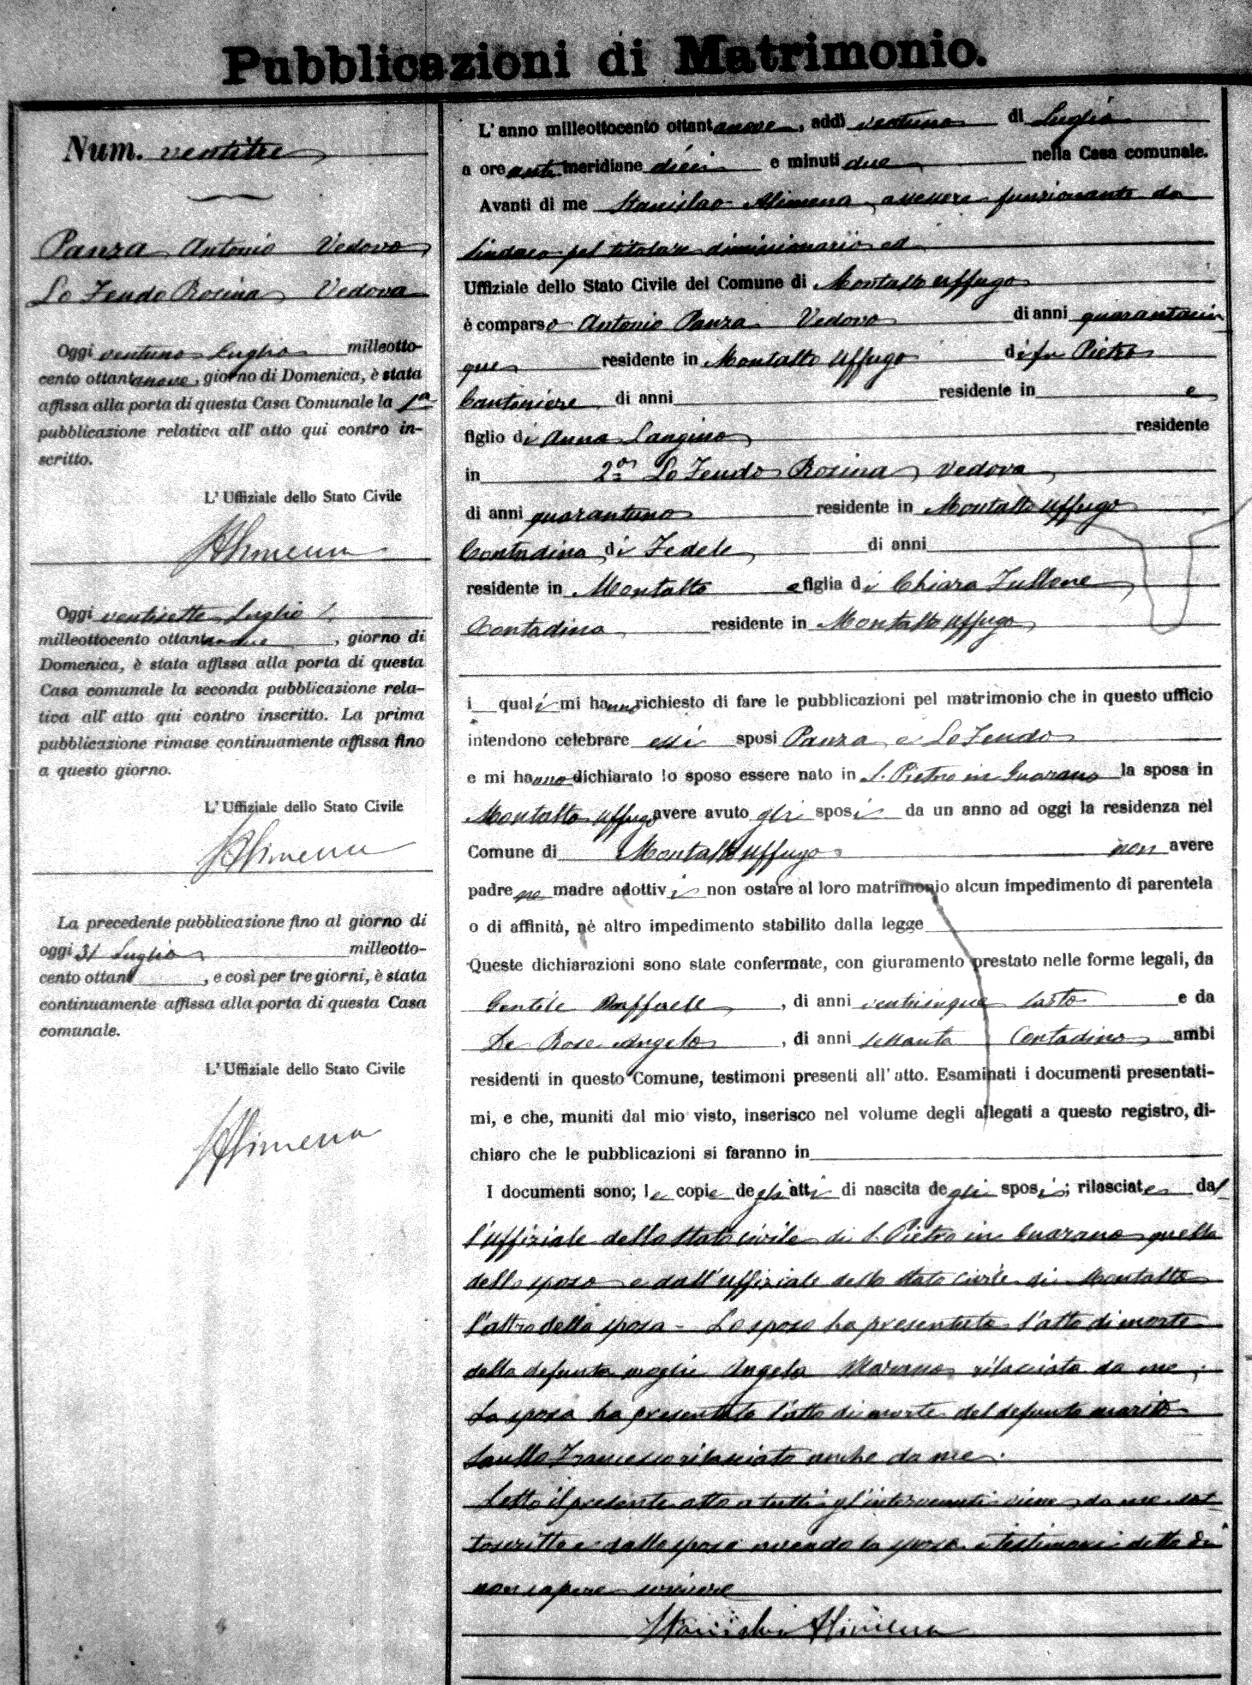 Pubblicazioni di Matrimonio.
Num. ventitre
Panza Antonio Vedovo
Lo Feudo Rosina Vedova
Oggi ventuno Luglio milleotto-
cento ottantanove, giorno di Domenica, è stata
affissa alla porta di questa Casa Comunale la 1a
pubblicazione relativa all' atto qui contro in-
scritto.
L' Uffiziale dello Stato Civile
SAlimena
Oggi ventisette Luglio
milleottocento ottant , giorno di
Domenica, è stata affissa alla porta di questa
Casa comunale la seconda pubblicazione rela-
tiva all' atto qui contro inscritto. La prima
pubblicazione rimase continuamente affissa fino
a questo giorno.
L' Uffiziale dello Stato Civile
SAlimena
La precedente pubblicazione fino al giorno di
oggi 31 Luglio milleotto-
cento ottant , e così per tre giorni, è stata
continuamente affissa alla porta di questa Casa
comunale.
L' Uffiziale dello Stato Civile
SAlimena
L' anno milleottocento ottantanove, addì ventuno di Luglio
a ore anti meridiane dieci e minuti due nella Casa comunale.
Avanti di me Stanislao Alimena assessore funzionante da
Sindaco pel titolare dimissionario ed
Uffiziale dello Stato Civile del Comune di Montalto Uffugo
è comparso Antonio Panza Vedovo di anni quarantacin
que residente in Montalto Uffugo di fu Pietro
Cantoniere di anni residente in e
figlio di Anna Langino residente
in 2a Lo Feudo Rosina, vedova
di anni quarantuno residente in Montalto Uffugo
Contadina di Fedele di anni
residente in Montalto e figlia di Chiara Fullone
Contadina residente in Montalto Uffugo
i quali mi hanno richiesto di fare le pubblicazioni pel matrimonio che in questo ufficio
intendono celebrare essi sposi Panza e Lo Feudo
e mi hanno dichiarato lo sposo essere nato in S. Pietro in Guarano la sposa in
Montalto Uffugo avere avuto gli sposi da un anno ad oggi la residenza nel
Comune di Montalto Uffugo non avere
padre ne madre adottivi non ostare al loro matrimonio alcun impedimento di parentela
o di affinità, nè altro impedimento stabilito dalla legge
Queste dichiarazioni sono state confermate, con giuramento prestato nelle forme legali, da
Gentile Raffaele, di anni venticinque sarto e da
De Rose Angelo, di anni sessanta Contadino ambi
residenti in questo Comune, testimoni presenti all' atto. Esaminati i documenti presentati-
mi, e che, muniti dal mio visto, inserisco nel volume degli allegati a questo registro, di-
chiaro che le pubblicazioni si faranno in
I documenti sono; le copie degli atti di nascita degli sposi; rilasciate dal
l'uffiziale dello stato civile di S. Pietro in Guarano quella
dello sposo e dall'uffiziale dello stato civile di Montalto
l'altro della sposa - Lo sposo ha presentato l'atto di morte
della defunta moglie Angela Marano rilasciato da me;
La sposa ha presentato l'atto di morte del defunto marito
Saullo Francesco rilasciato anche da me.
Letto il presente atto a tutti gl'intervenuti viene da me sot-
toscritto e dallo sposo avendo la sposa e testimoni detto di
non sapere scrivere
Stanislao Alimena